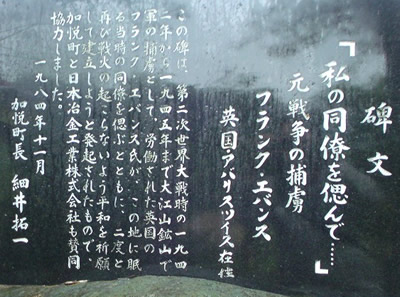 碑文
「私の同僚を偲んで……」
元戦争の捕虜
フランク・エバンス
英国・アバリスツイス在住
この碑は、第二次世界大戦時の一九四
二年から一九四五年まで大江山鉱山で
軍の捕虜として、労働された英国の
フランク・エバンス氏が、この地に眠
る当時の同僚を偲ぶとともに、二度と
再び戦火の起こらないよう平和を祈願
して建立しようと発起されたもので、
加悦町と日本冶金工業株式会社も賛同
協力しました。
一九八四年十一月
加悦町長 細井拓一